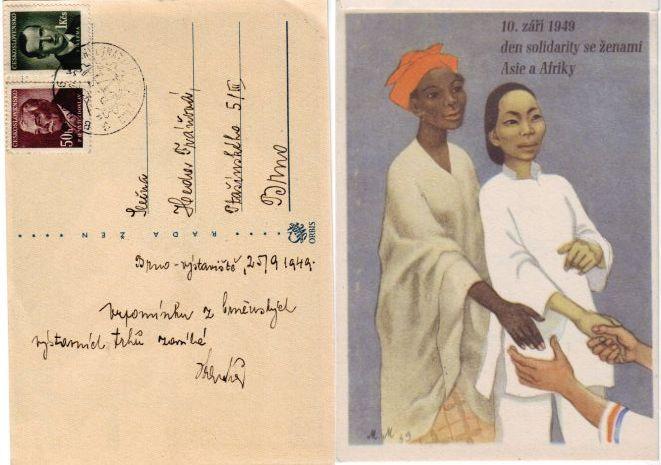 ČESKOSLOVENSKO
1 Kčs
ČESKOSLOVENSKO
50h
Slečna
Hedva
Stašínského 5/III
Brno
RADA ŽEN
ORBIS
Brno-výstaviště, 25/9 1949.
vzpomínku z brněnských
výstavních trhů zasílá
10. září 1949
den solidarity se ženami
Asie a Afriky
M. M 49